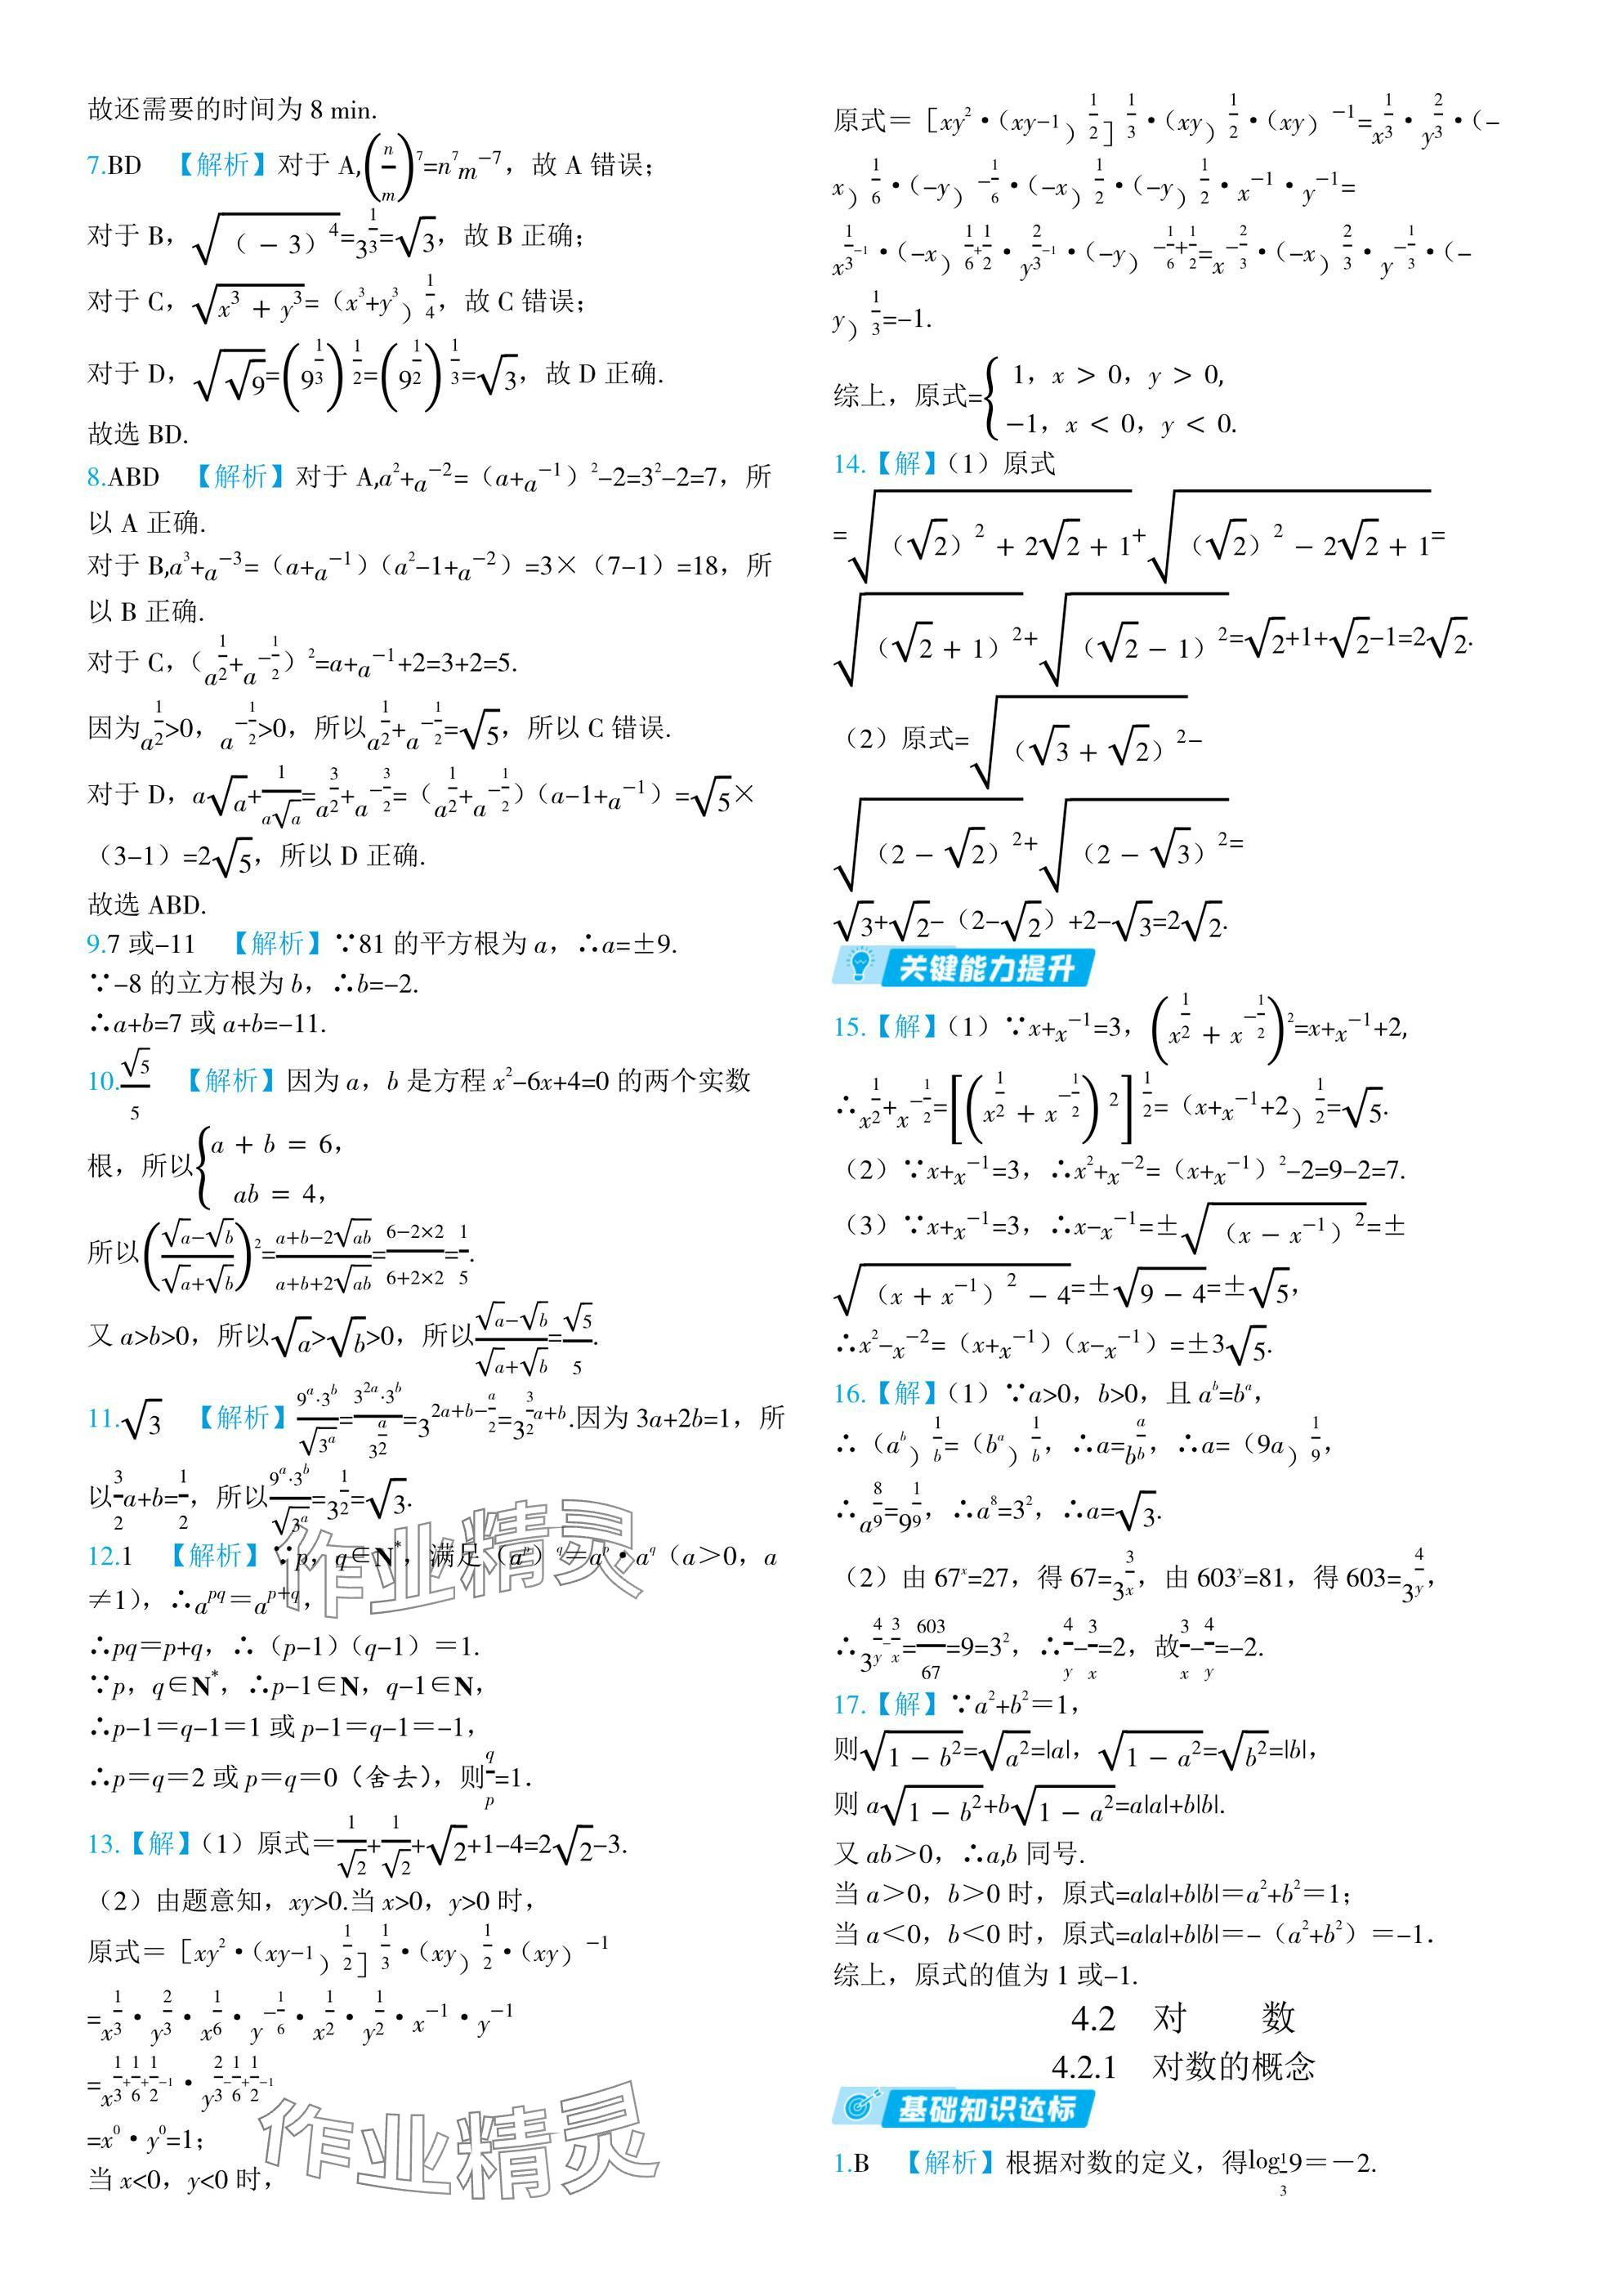 故还需要的时间为 8 min.
7.BD 【解析】对于 A,(n/m)^7=n^7m^−7，故 A 错误；
对于 B，√(（−3）^4)=3^(1/3)=√3，故 B 正确；
对于 C，√(x^3+y^3)=（x^3+y^3）^(1/4)，故 C 错误；
对于 D，√(√9)=(9^(1/3))^(1/2)=(9^(1/2))^(1/3)=√3，故 D 正确.
故选 BD.
8.ABD 【解析】对于 A,a^2+a^−2=（a+a^−1）^2−2=3^2−2=7，所
以 A 正确.
对于 B,a^3+a^−3=（a+a^−1）（a^2−1+a^−2）=3×（7−1）=18，所
以 B 正确.
对于 C，（a^(1/2)+a^(−1/2)）^2=a+a^−1+2=3+2=5.
因为a^(1/2)>0，a^(−1/2)>0，所以a^(1/2)+a^(−1/2)=√5，所以 C 错误.
对于 D，a√a+1/(a√a)=a^(3/2)+a^(−3/2)=（a^(1/2)+a^(−1/2)）（a−1+a^−1）=√5×
（3−1）=2√5，所以 D 正确.
故选 ABD.
9.7 或−11 【解析】∵81 的平方根为 a，∴a=±9.
∵−8 的立方根为 b，∴b=−2.
∴a+b=7 或 a+b=−11.
10.√5/5 【解析】因为 a，b 是方程 x^2−6x+4=0 的两个实数
根，所以{a + b = 6，
ab = 4，
所以((√a−√b)/(√a+√b))^2=(a+b−2√ab)/(a+b+2√ab)=(6−2×2)/(6+2×2)=1/5.
又 a>b>0，所以√a>√b>0，所以(√a−√b)/(√a+√b)=√5/5.
11.√3 【解析】(9^a·3^b)/√(3^a)=(3^2a·3^b)/3^(a/2)=3^(2a+b−a/2)=3^(3/2a+b).因为 3a+2b=1，所
以3/2a+b=1/2，所以(9^a·3^b)/√(3^a)=3^(1/2)=√3.
12.1 【解析】∵p，q∈N^*，满足（a^p）^q＝a^p·a^q（a＞0，a
≠1），∴a^pq＝a^(p+q)，
∴pq＝p+q，∴（p−1）（q−1）＝1.
∵p，q∈N^*，∴p−1∈N，q−1∈N，
∴p−1＝q−1＝1 或 p−1＝q−1＝−1，
∴p＝q＝2 或 p＝q＝0（舍去），则q/p=1.
13.【解】（1）原式＝1/√2+1/√2+√2+1−4=2√2−3.
（2）由题意知，xy>0.当 x>0，y>0 时，
原式＝［xy^2·（xy−1）^(1/2)］^(1/3)·（xy）^(1/2)·（xy）^−1
=x^(1/3)·y^(2/3)·x^(1/6)·y^(−1/6)·x^(1/2)·y^(1/2)·x^−1·y^−1
=x^(1/3+1/6+1/2−1)·y^(2/3−1/6+1/2−1)
=x^0·y^0=1；
当 x<0，y<0 时，
原式＝［xy^2·（xy−1）^(1/2)］^(1/3)·（xy）^(1/2)·（xy）^−1=x^(1/3)·y^(2/3)·（−
x）^(1/6)·（−y）^(−1/6)·（−x）^(1/2)·（−y）^(1/2)·x^−1·y^−1=
x^(1/3−1)·（−x）^(1/6+1/2)·y^(2/3−1)·（−y）^(−1/6+1/2)=x^(−2/3)·（−x）^(2/3)·y^(−1/3)·（−
y）^(1/3)=−1.
综上，原式={1，x > 0，y > 0,
−1，x < 0，y < 0.
14.【解】（1）原式
=√(（√2）^2+2√2+1)+√(（√2）^2−2√2+1)=
√(（√2+1）^2)+√(（√2−1）^2)=√2+1+√2−1=2√2.
（2）原式=√(（√3+√2）^2)−
√(（2−√2）^2)+√(（2−√3）^2)=
√3+√2−（2−√2）+2−√3=2√2.
关键能力提升
15.【解】（1）∵x+x^−1=3，(x^(1/2)+x^(−1/2))^2=x+x^−1+2,
∴x^(1/2)+x^(−1/2)=[(x^(1/2)+x^(−1/2))^2]^(1/2)=（x+x^−1+2）^(1/2)=√5.
（2）∵x+x^−1=3，∴x^2+x^−2=（x+x^−1）^2−2=9−2=7.
（3）∵x+x^−1=3，∴x−x^−1=±√(（x−x^−1）^2)=±
√(（x+x^−1）^2−4)=±√(9−4)=±√5，
∴x^2−x^−2=（x+x^−1）（x−x^−1）=±3√5.
16.【解】（1）∵a>0，b>0，且 a^b=b^a，
∴（a^b）^(1/b)=（b^a）^(1/b)，∴a=b^(a/b)，∴a=（9a）^(1/9)，
∴a^(8/9)=9^(1/9)，∴a^8=3^2，∴a=√3.
（2）由 67^x=27，得 67=3^(3/x)，由 603^y=81，得 603=3^(4/y)，
∴3^(4/y−3/x)=603/67=9=3^2，∴4/y−3/x=2，故3/x−4/y=−2.
17.【解】∵a^2+b^2＝1，
则√(1−b^2)=√(a^2)=|a|，√(1−a^2)=√(b^2)=|b|，
则 a√(1−b^2)+b√(1−a^2)=a|a|+b|b|.
又 ab＞0，∴a,b 同号.
当 a＞0，b＞0 时，原式=a|a|+b|b|＝a^2+b^2＝1；
当 a＜0，b＜0 时，原式=a|a|+b|b|＝−（a^2+b^2）＝−1.
综上，原式的值为 1 或−1.
4.2 对 数
4.2.1 对数的概念
基础知识达标
1.B 【解析】根据对数的定义，得log_(1/3)9＝−2.
作业精灵
作业精灵